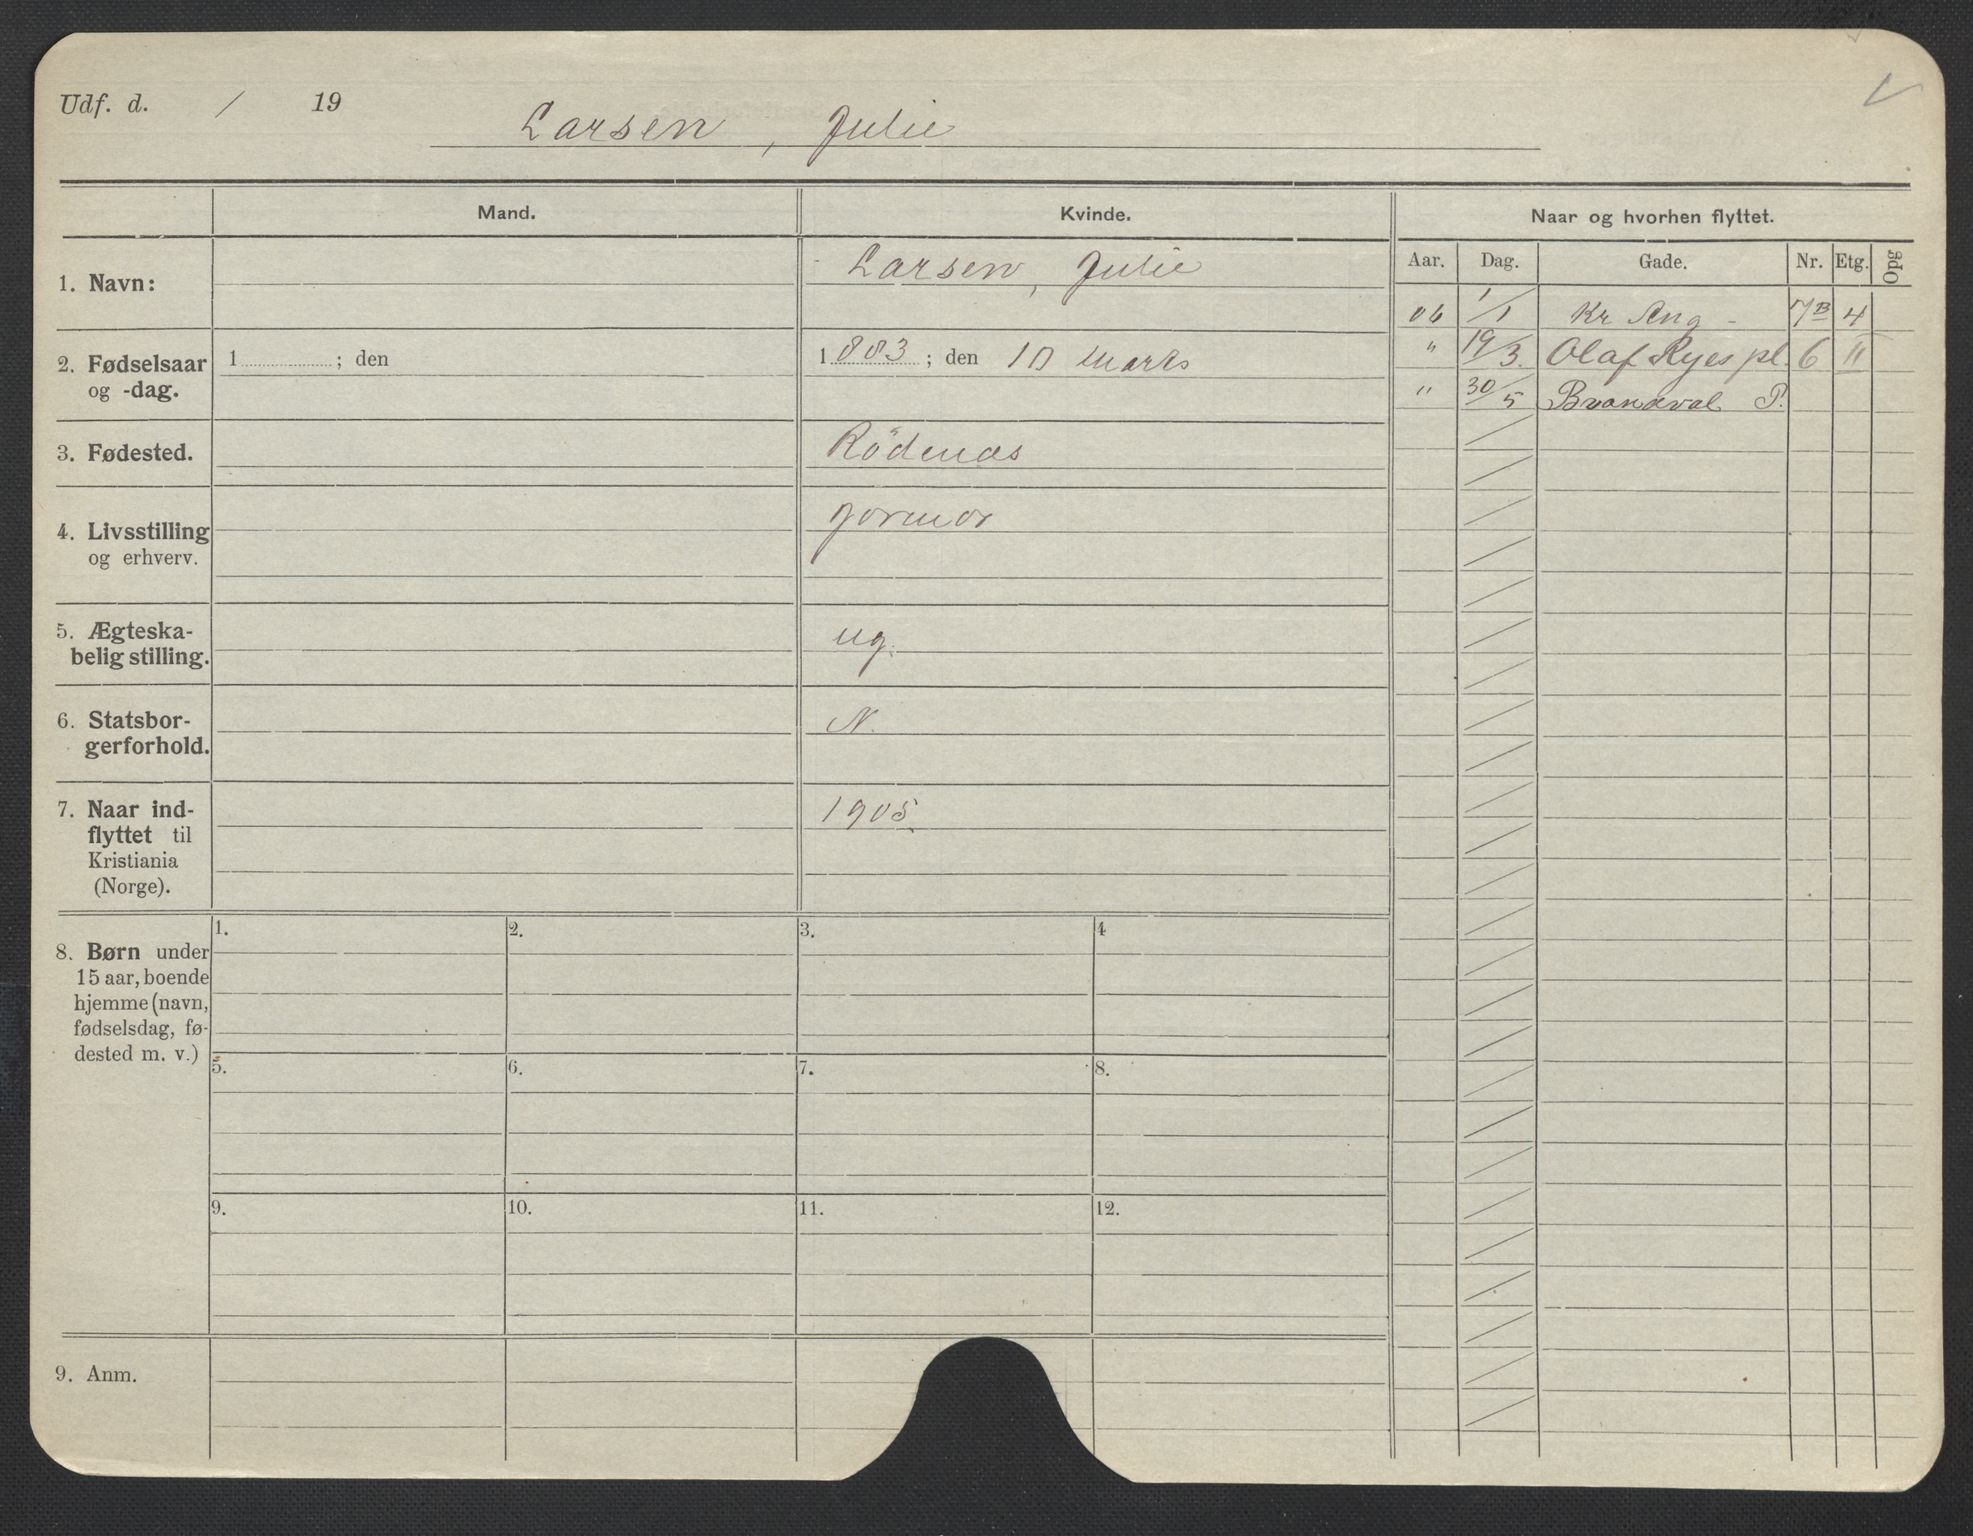 Udf. d. / 19
Larsen, Julie
Mand.
Kvinde.
Naar og hvorhen flyttet.
Aar. Dag. Gade. Nr. Etg. Opg
1. Navn:
Larsen, Julie
06 1/1 Kr Aug - 7B 4
" 19/3. Olaf Ryes pl. 6 "
" 30/5 Brandval P.
2. Fødselsaar
og -dag.
1 ; den
1883 ; den 10 Marts
3. Fødested.
Rödenæs
4. Livsstilling
og erhverv.
jormor
5. Ægteska-
belig stilling.
ug.
6. Statsbor-
gerforhold.
N.
7. Naar ind-
flyttet til
Kristiania
(Norge).
1905.
8. Børn under
15 aar, boende
hjemme (navn,
fødselsdag, fø-
dested m. v.)
1. 2. 3. 4
5. 6. 7. 8.
9. 10. 11. 12.
9. Anm.